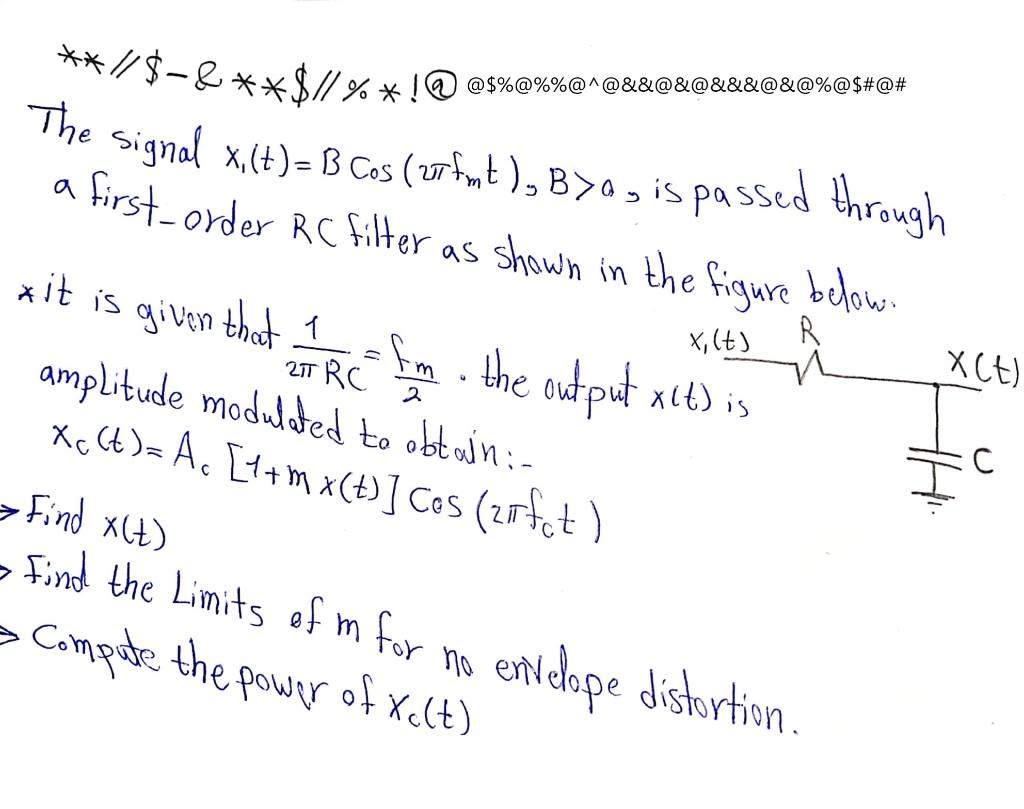 **//$-&**$//%*!@ @$%@%%@^@&&@&@&&&@&@%@$#@#
The signal x₁(t)= B Cos (2πfₘt), B>0, is passed through
a first-order RC filter as shown in the figure below.
* it is given that 1/(2πRC) = fₘ/2 . the output x(t) is
amplitude modulated to obtain:-
x꜀(t)= A꜀ [1+m x(t)] Cos (2πf꜀t)
→ Find x(t)
→ Find the Limits of m for no envelope distortion.
→ Compute the power of x꜀(t)
x₁(t)
R
X(t)
C